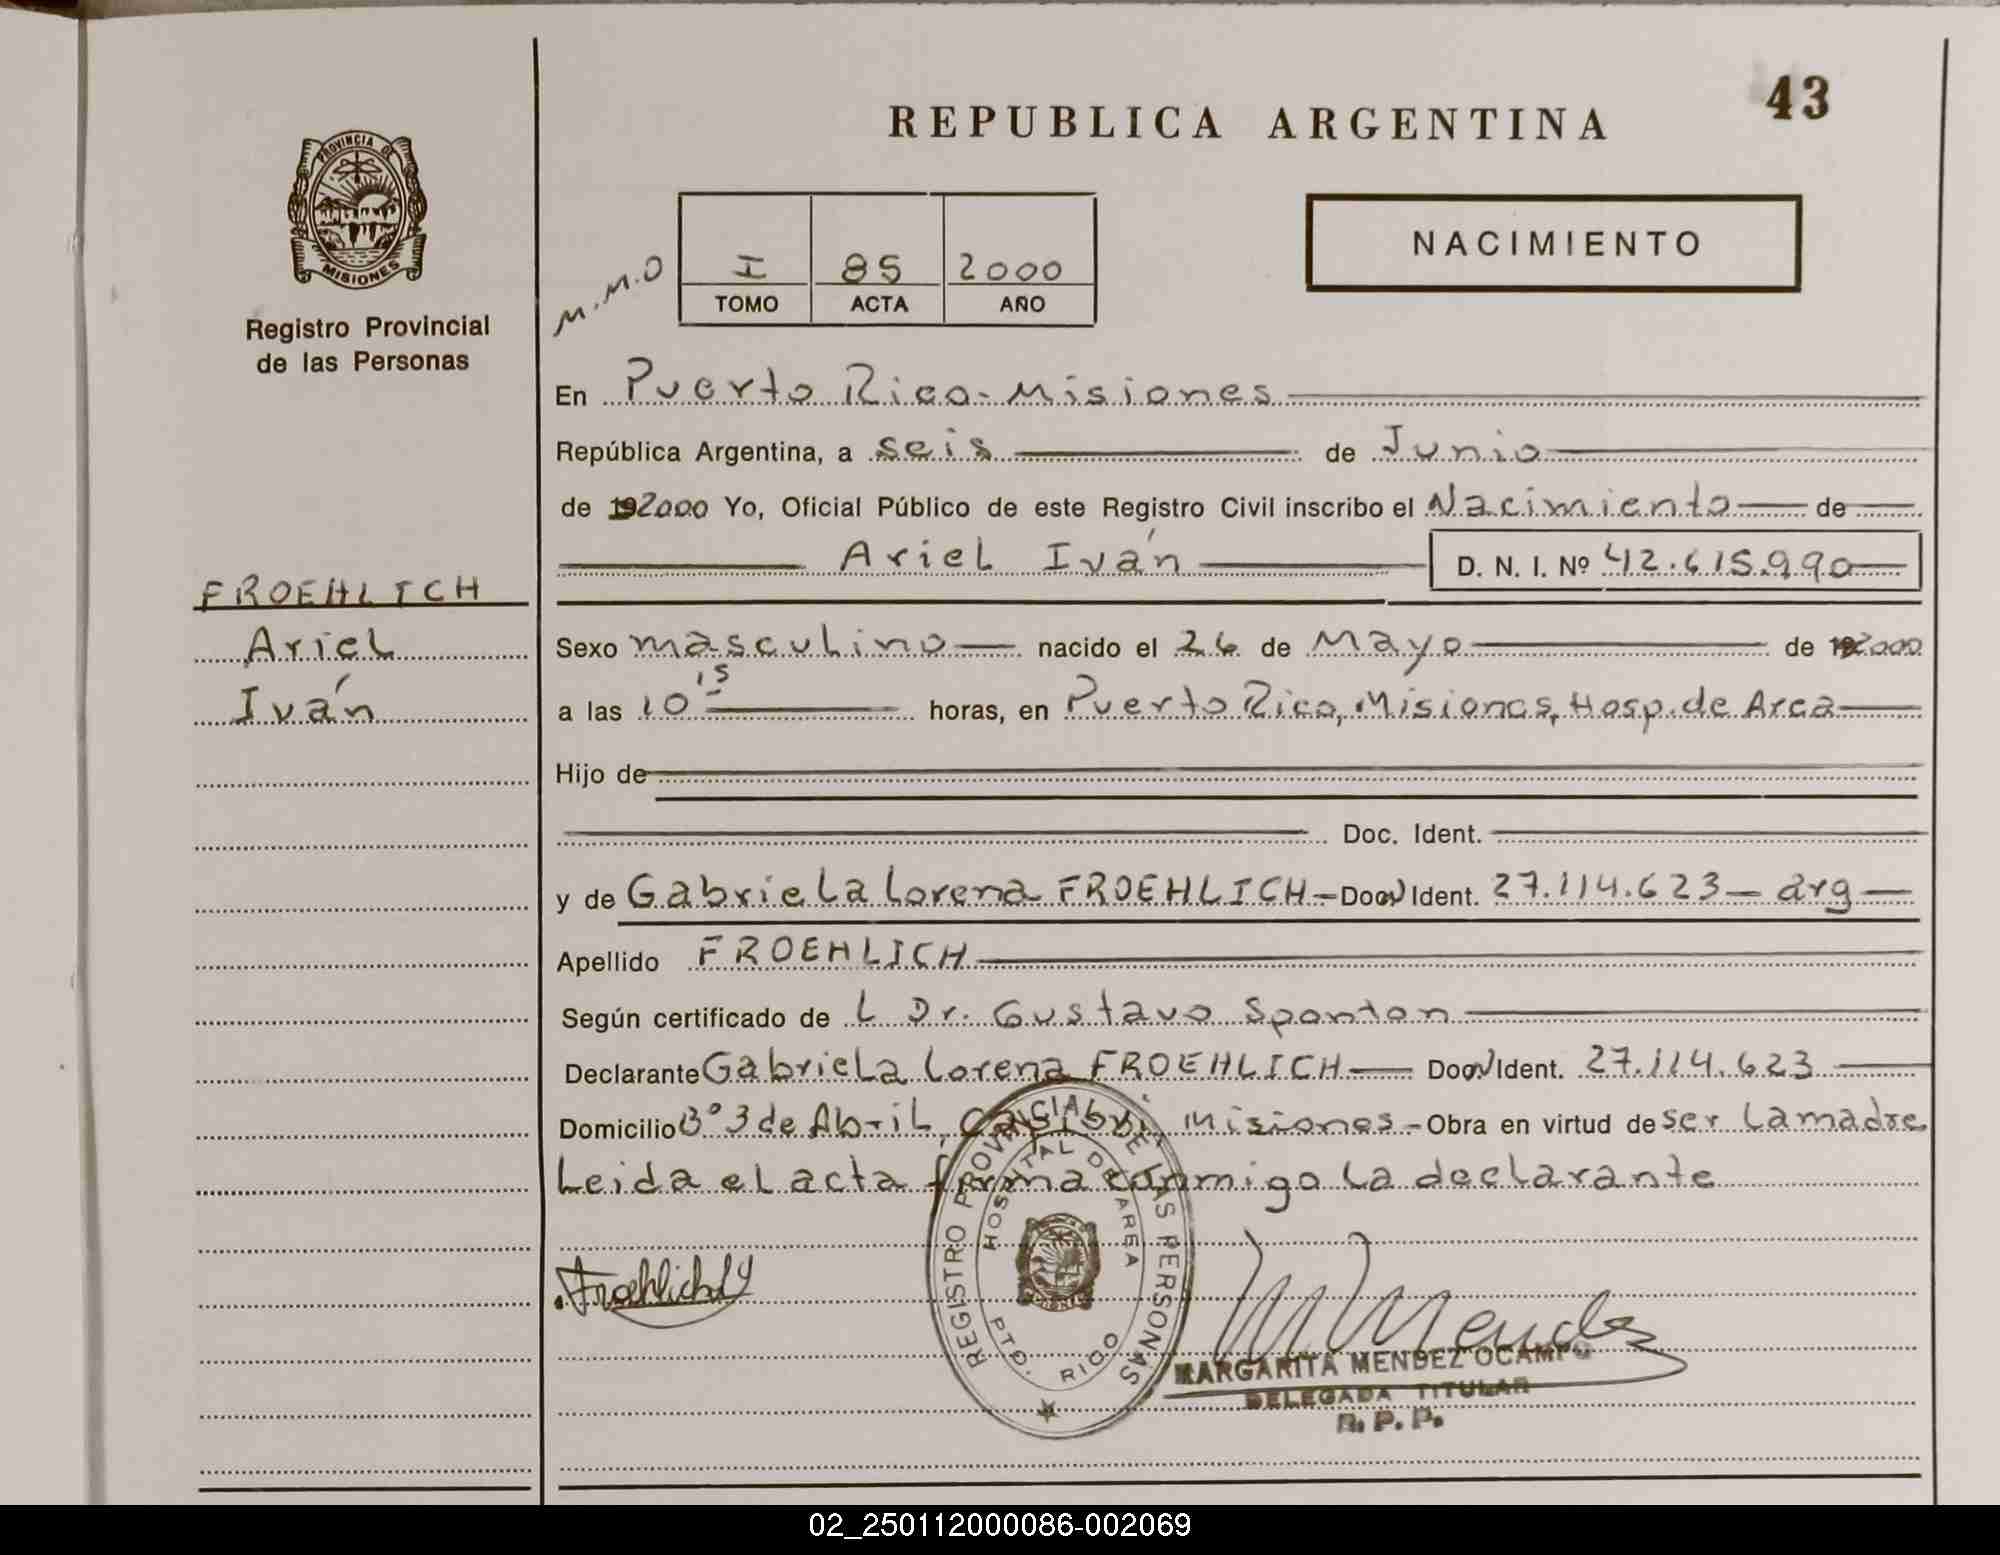 43
REPUBLICA ARGENTINA
NACIMIENTO
M.M.O
I 85 2000
TOMO ACTA AÑO
PROVINCIA DE
MISIONES
Registro Provincial
de las Personas
En Puerto Rico - Misiones
República Argentina, a seis de Junio
de 192000 Yo, Oficial Público de este Registro Civil inscribo el Nacimiento de
Ariel Iván D. N. I. Nº 42.615.990
FROEHLICH
Ariel
Iván
Sexo masculino nacido el 26 de Mayo de 192000
a las 10 15 horas, en Puerto Rico, Misiones, Hosp. de Area
Hijo de
Doc. Ident.
y de Gabriela Lorena FROEHLICH - Doc. Ident. 27.114.623 - arg
Apellido FROEHLICH
Según certificado de L Dr. Gustavo Sponton
Declarante Gabriela Lorena FROEHLICH Doc. Ident. 27.114.623
Domicilio Bº 3 de Abril, Misiones - Obra en virtud de ser la madre
Leida el acta firma conmigo la declarante
Froehlich
REGISTRO PROVINCIAL DE LAS PERSONAS
HOSPITAL DE AREA
PTO. RICO
M Mendez
MARGARITA MENDEZ OCAMPO
DELEGADA TITULAR
R. P. P.
02_250112000086-002069